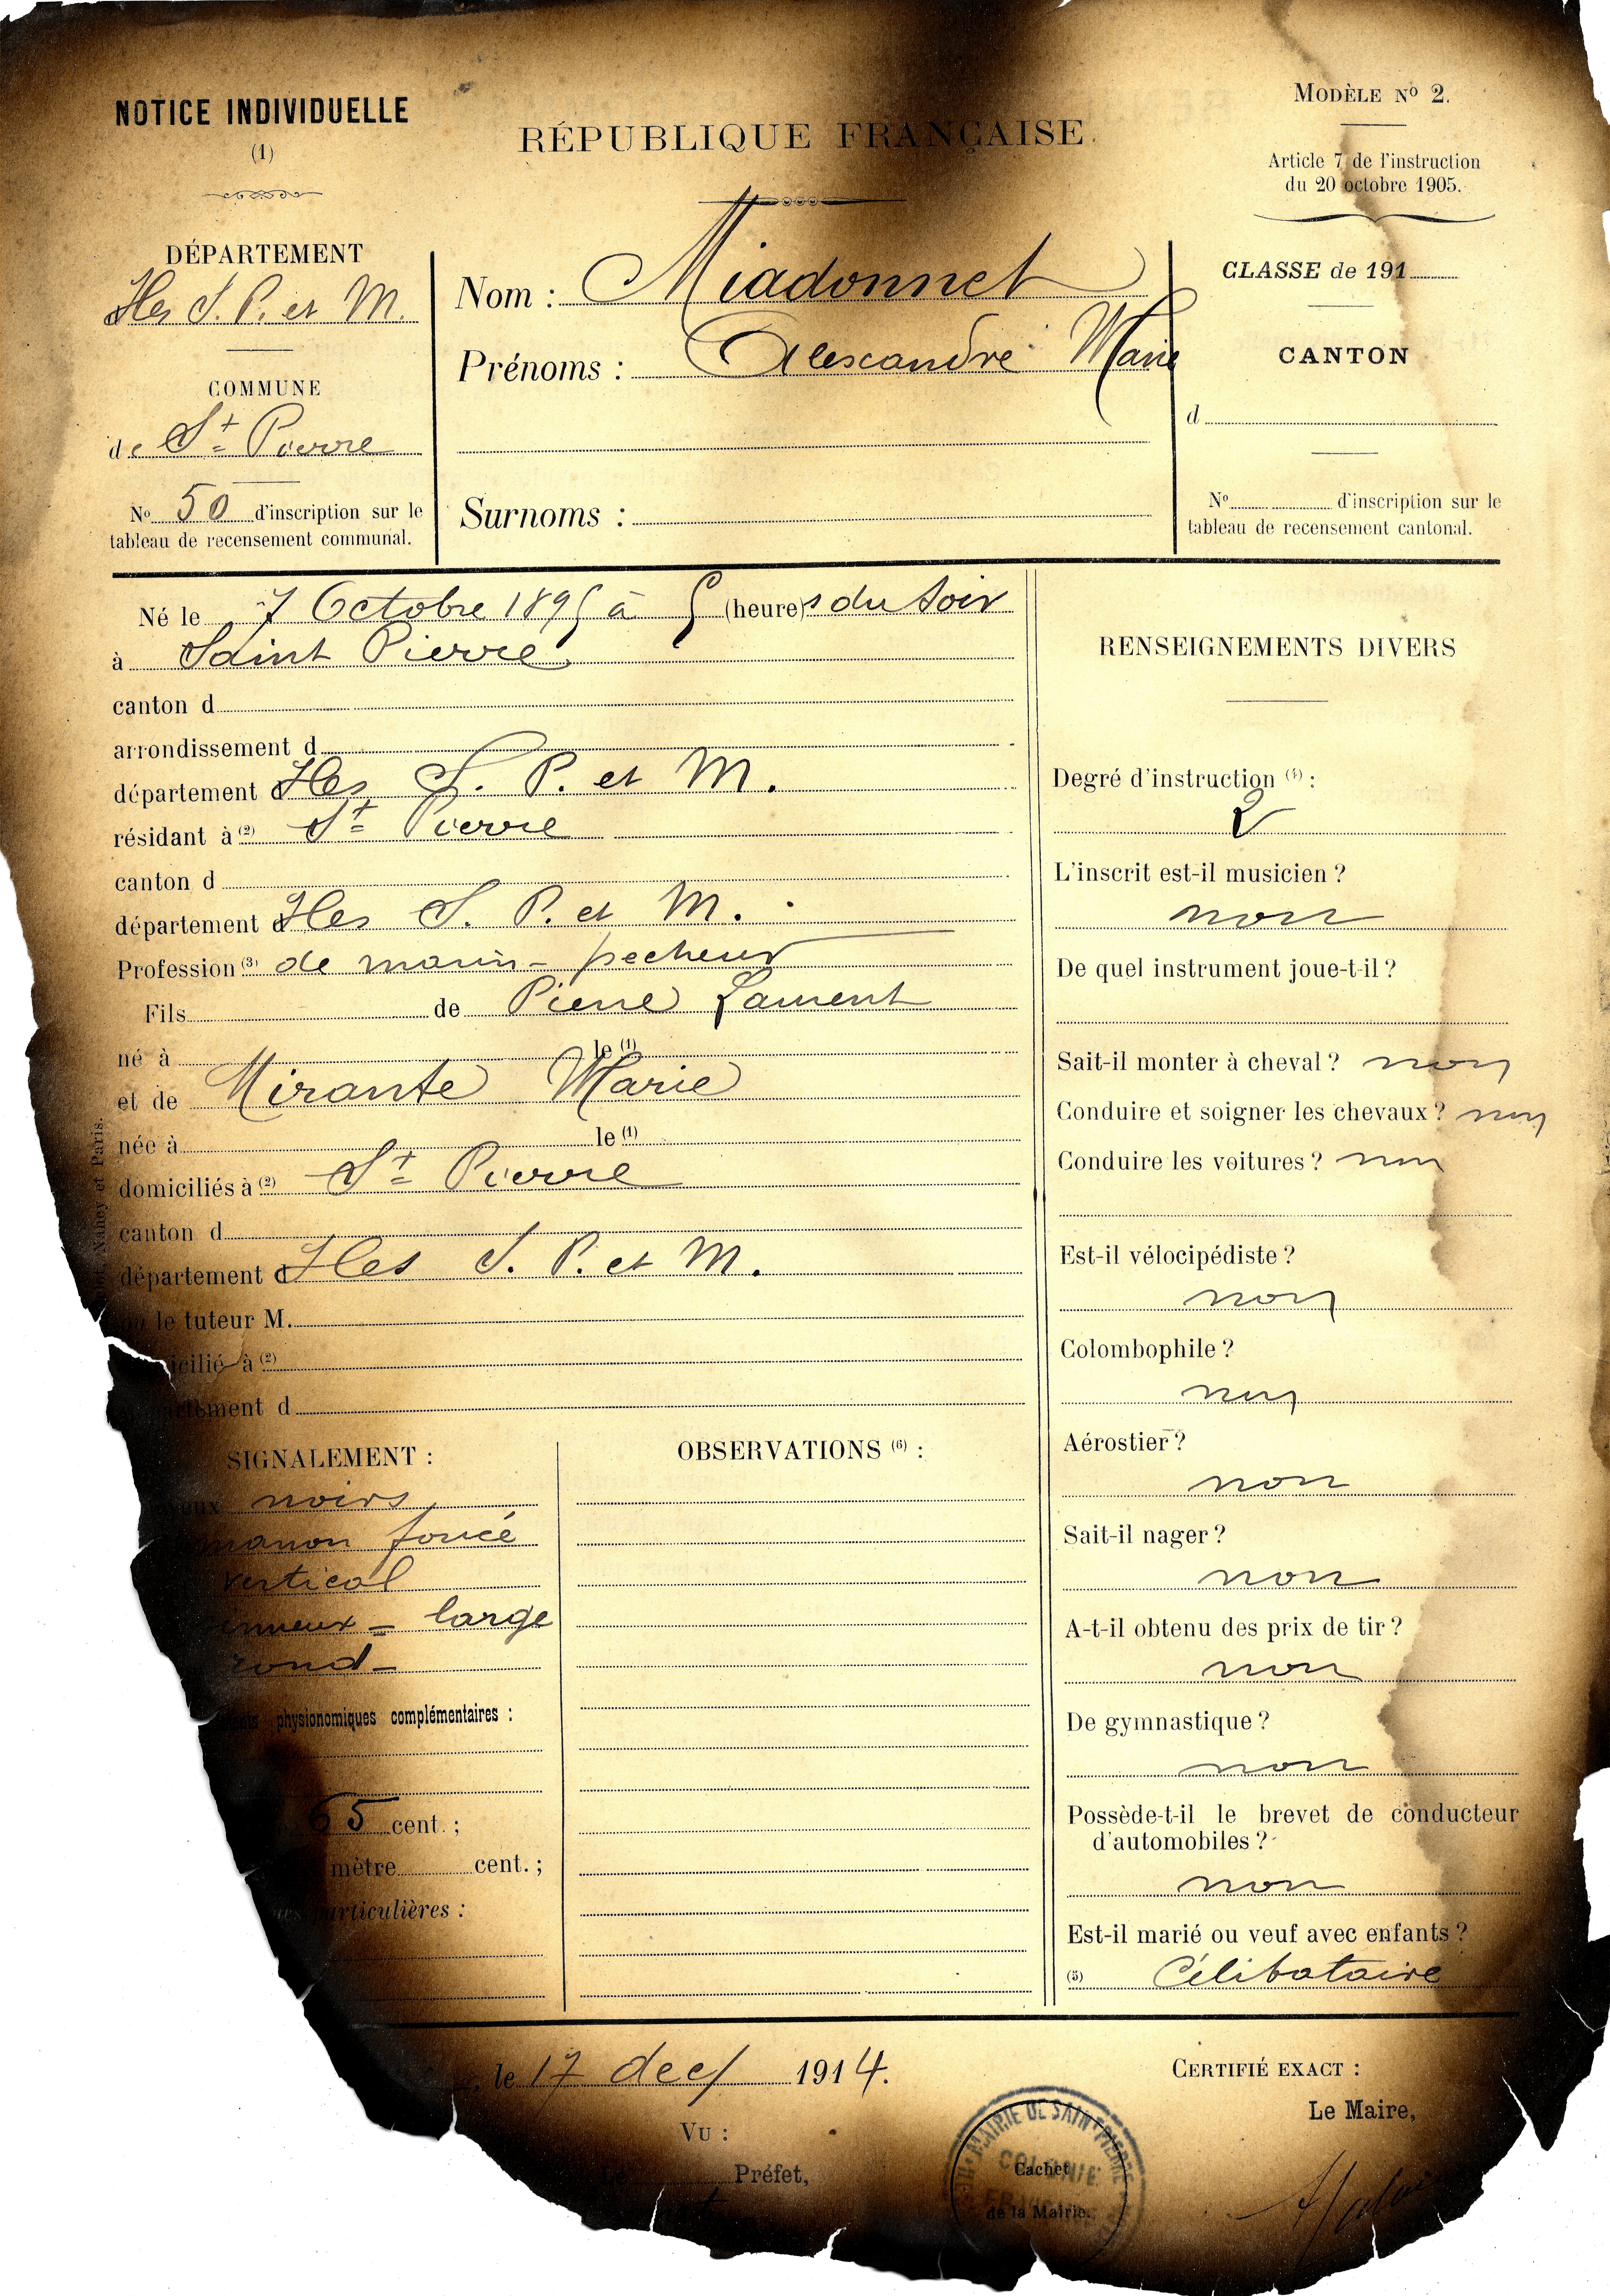 NOTICE INDIVIDUELLE
(1)
RÉPUBLIQUE FRANÇAISE.
MODÈLE No 2.
Article 7 de l'instruction
du 20 octobre 1905.
DÉPARTEMENT
Iles S. P. et M.
COMMUNE
de St Pierre
No 50 d'inscription sur le
tableau de recensement communal.
Nom : Miadonnet
Prénoms : Alexandre Marie
Surnoms :
CLASSE de 191
CANTON
d
No d'inscription sur le
tableau de recensement cantonal.
Né le 7 Octobre 1895 à 5 (heure)s du soir
à Saint Pierre
canton d
arrondissement d
département d Iles S. P. et M.
résidant à (2) St Pierre
canton d
département d Iles S. P. et M.
Profession (3) de marin-pecheur
Fils de Pierre Laurent
né à le (1)
et de Mirante Marie
née à le (1)
domiciliés à (2) St Pierre
canton d
département d Iles S. P. et M.
le tuteur M.
icilié à (2)
artement d
Nancy et Paris.
RENSEIGNEMENTS DIVERS
Degré d'instruction (4) :
2
L'inscrit est-il musicien ?
non
De quel instrument joue-t-il ?
Sait-il monter à cheval ? non
Conduire et soigner les chevaux ? non
Conduire les voitures ? non
Est-il vélocipédiste ?
non
Colombophile ?
non
Aérostier ?
non
Sait-il nager ?
non
A-t-il obtenu des prix de tir ?
non
De gymnastique ?
non
Possède-t-il le brevet de conducteur
d'automobiles ?
non
Est-il marié ou veuf avec enfants ?
(5) Célibataire
SIGNALEMENT :
noirs
foncé
vertical
large
rond
physionomiques complémentaires :
65 cent. ;
mètre cent. ;
particulières :
OBSERVATIONS (6) :
le 17 dec/ 1914.
VU :
Préfet,
MAIRIE DE SAINT-PIERRE
COLONIE
Cachet
de la Mairie.
CERTIFIÉ EXACT :
Le Maire,